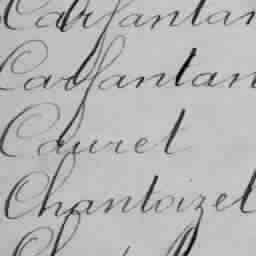 Carfantan
Carfantan
Cauret
Chantoizel